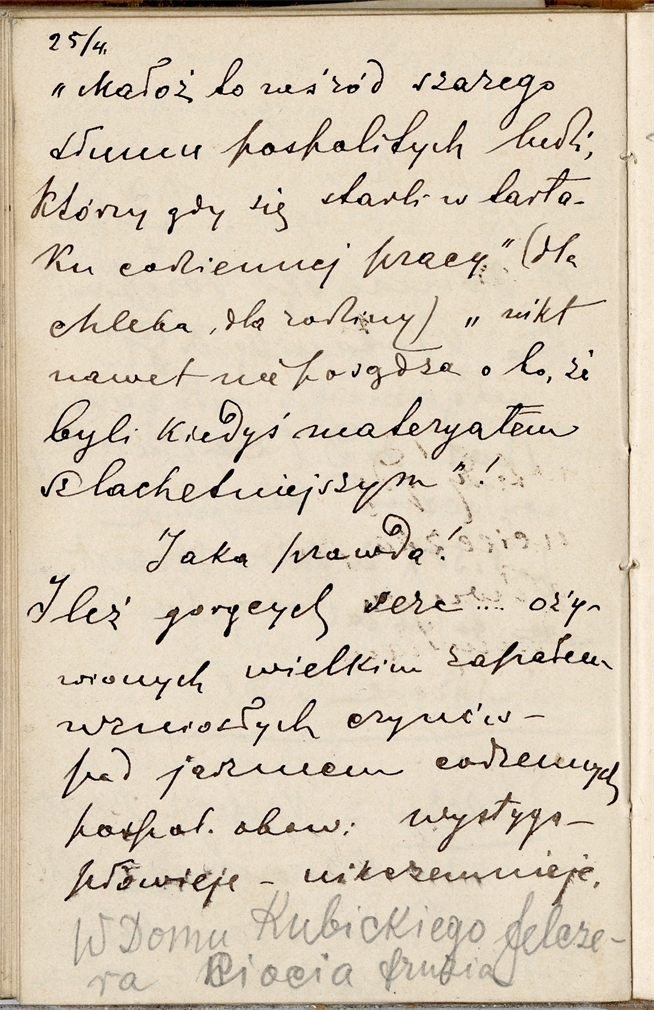 25/4.
"Małoż to wśród szarego
tłumu pospolitych ludzi,
którzy gdy się starli w tarta-
ku codziennej pracy" (dla
chleba, dla rodziny) "nikt
nawet nie posądza o to, że
byli kiedyś materyałem
szlachetniejszym"!
Jaka prawda!
Ileż gorących serc... oży-
wionych wielkim zapałem
wzniosłych czynów -
pod jarzmem codziennych
pospol. obow. wystyga -
płowieje - nikczemnieje.
W Domu Kubickiego felcze-
ra Ciocia